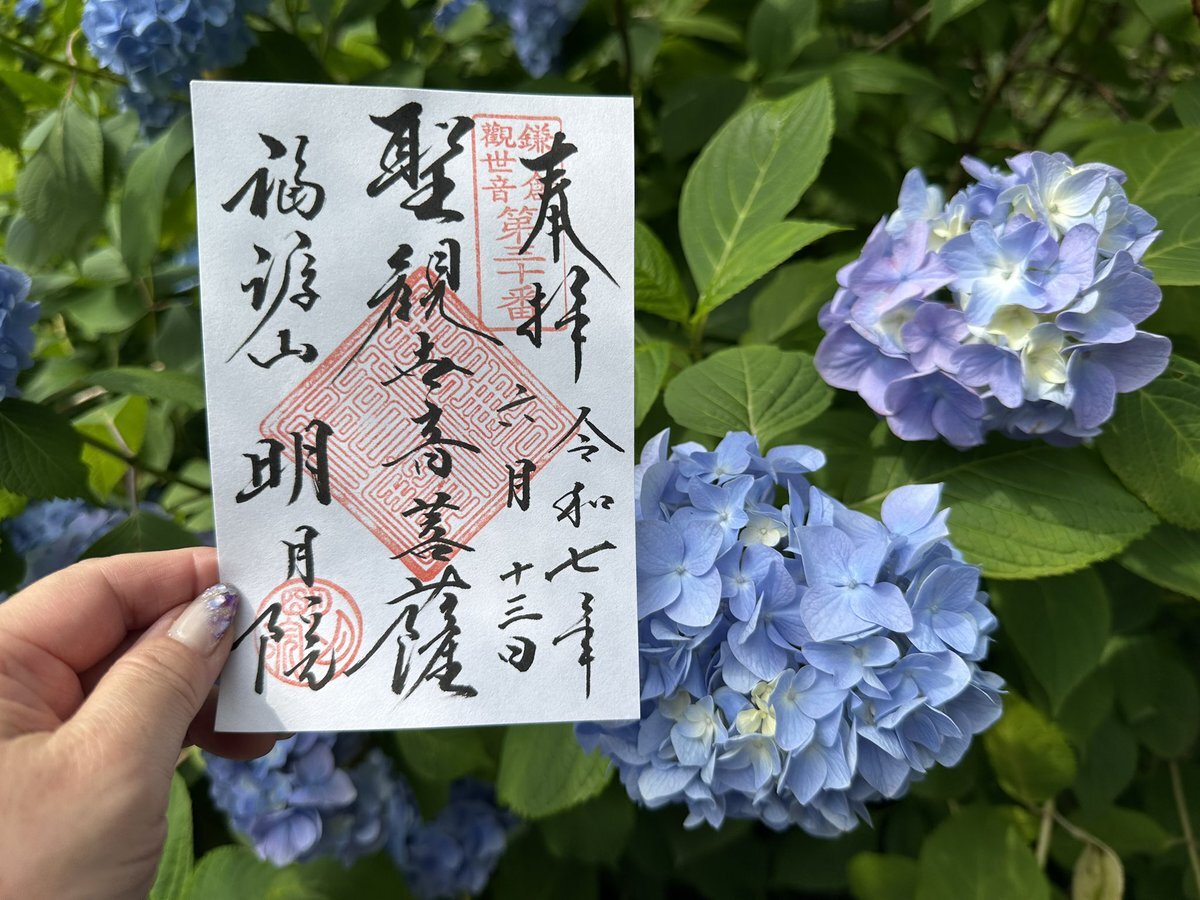 奉拝 令和七年
六月十三日
鎌倉
觀世音
第三十番
聖観世音菩薩
福源山 明月院